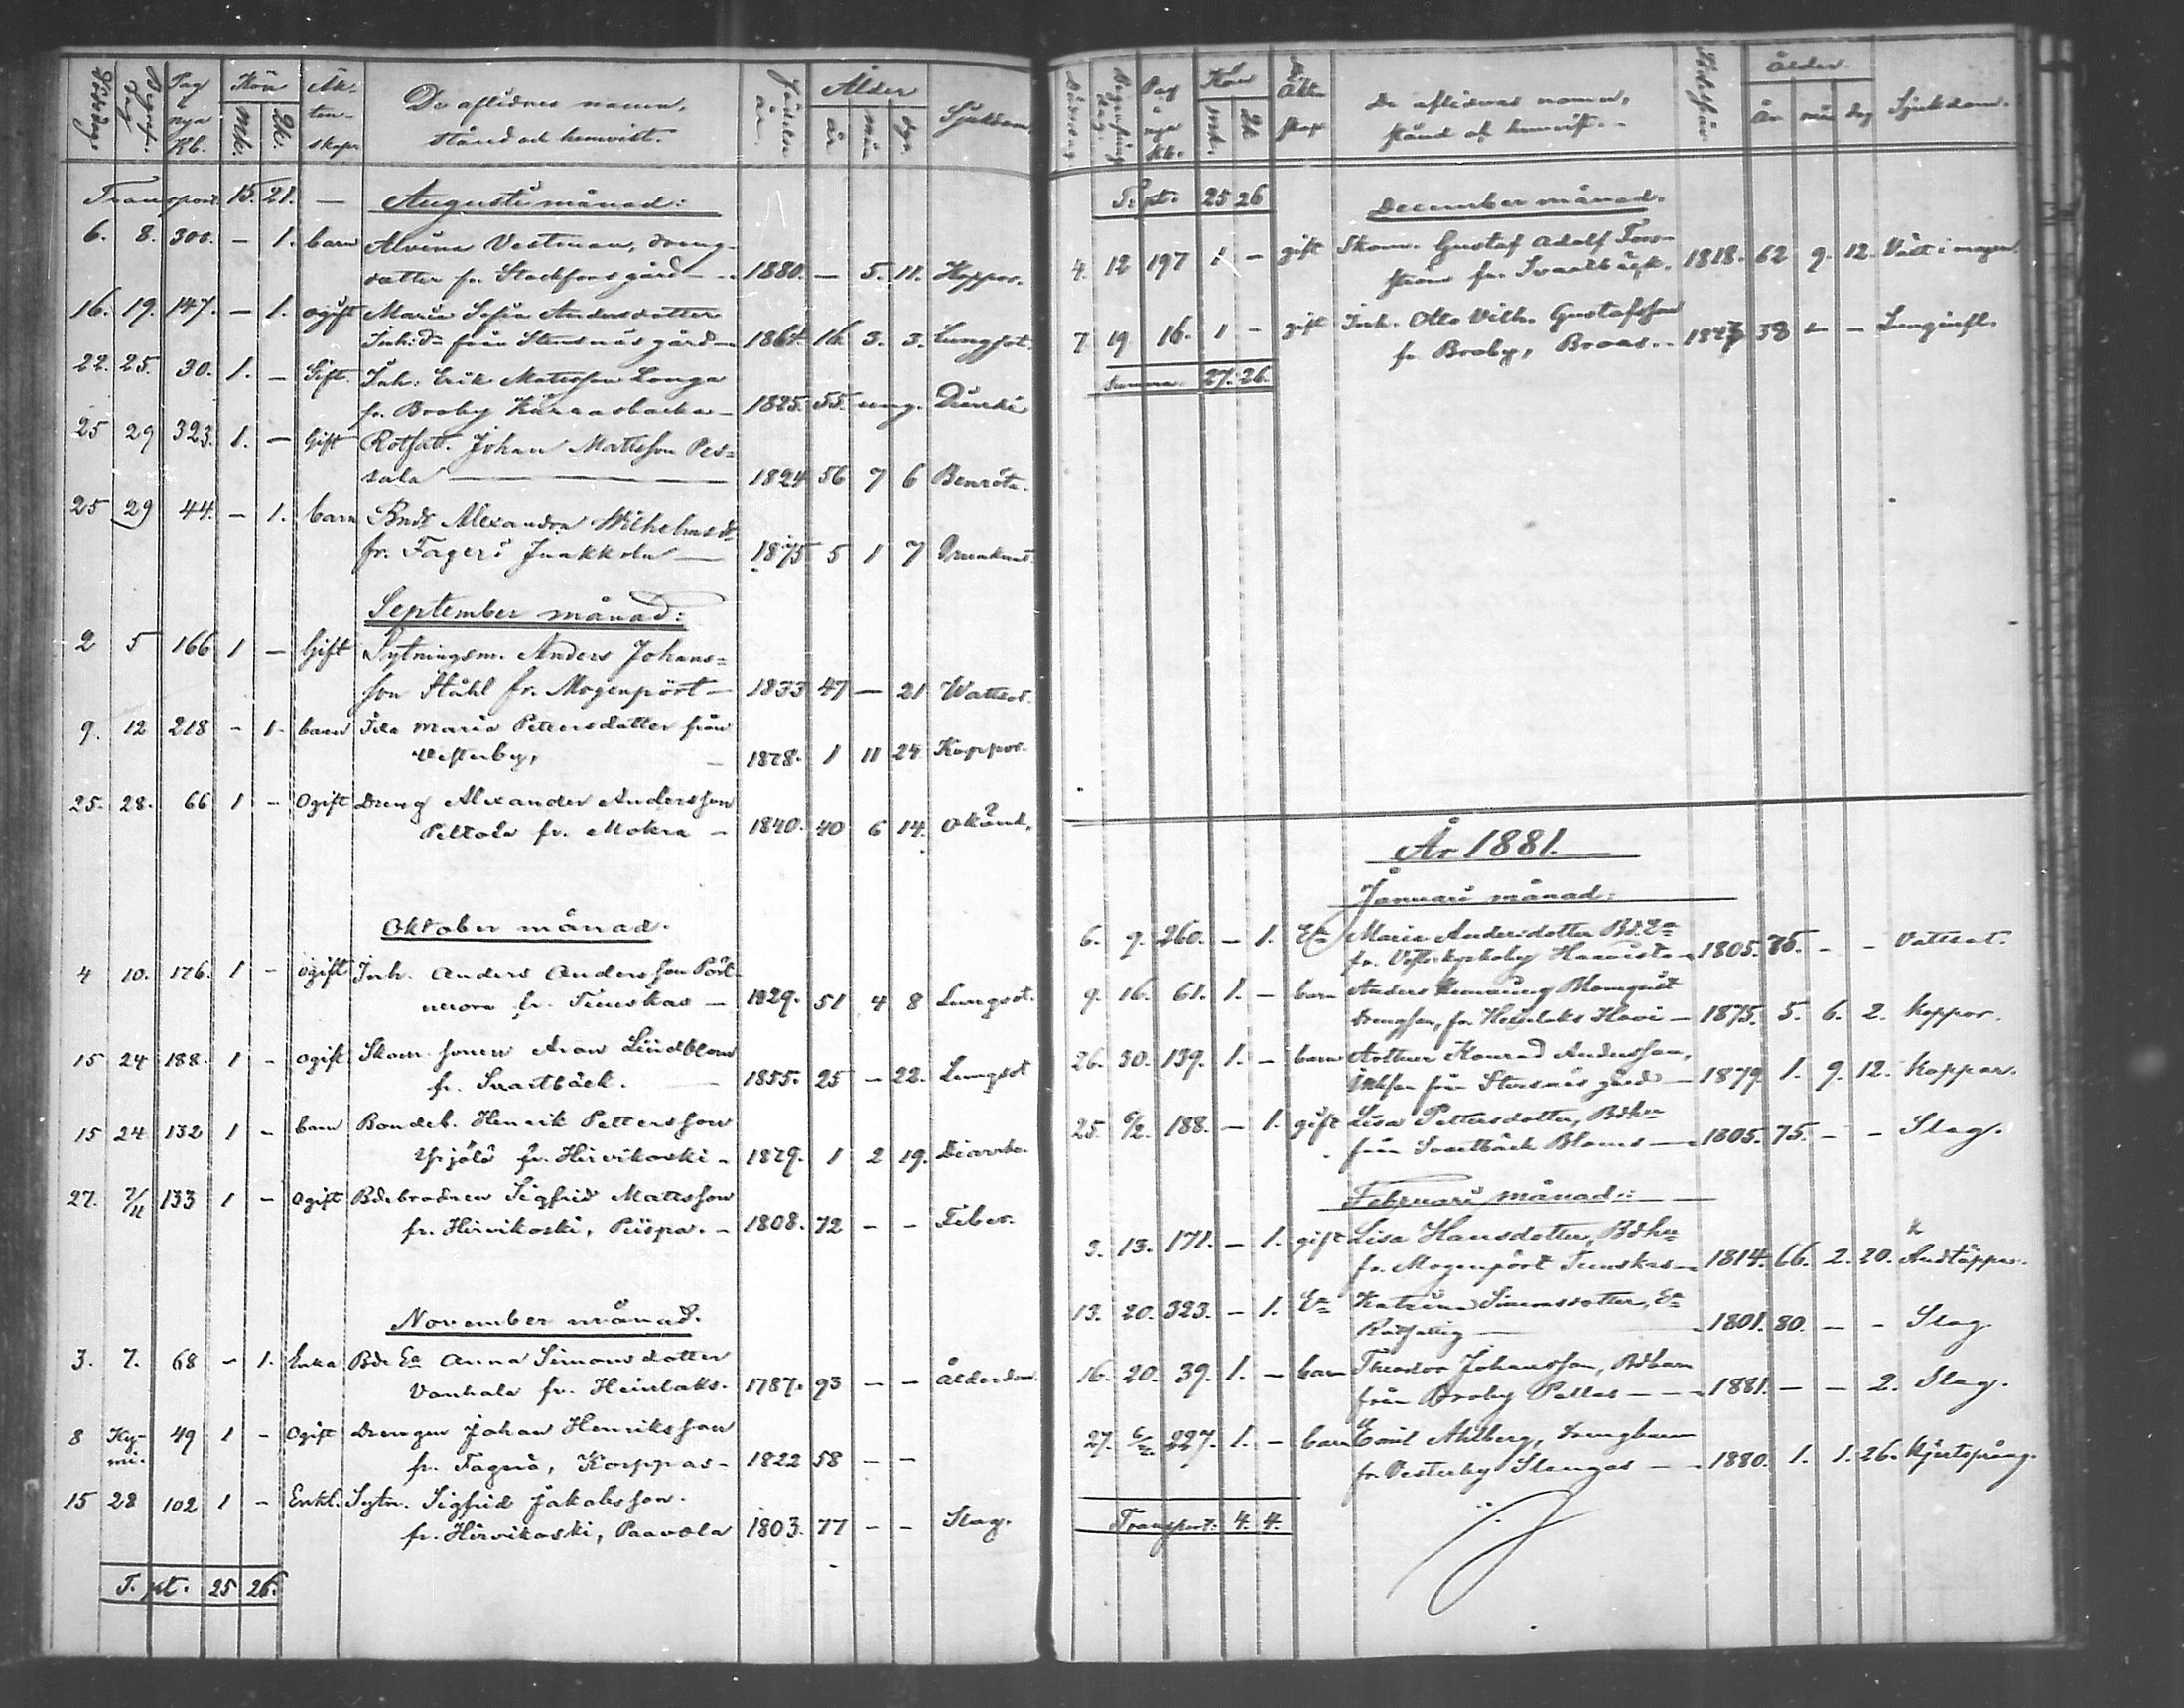 Dödsdag Begrafn. dag Pag i nya Kb. Kön Mk. Qk. Äktenskap. De aflidnes namn, stånd och hemvist. Födelse år Ålder år mån dgr. Sjukdom
Transport. 15. 21. — Augusti månad:
6. 8. 300. — 1. barn Alvina Vestman, dreng-
dotter fr. Stockfors gård — 1880. — 5. 11. Koppor.
16. 19. 147. — 1. ogift Maria Sofia Andersdotter
Inh:dr från Stensnäs gård — 1864. 16. 3. 3. Lungsot.
22. 25. 30. 1. — Gift. Inh: Erik Matsson Longa
fr. Broby — 1825. 55. ung.
25 29 323. 1. — Gift Rotfatt. Johan Mattsson Pes=
sala — 1824 56 7 6 Benröta.
25 29 44. — 1. barn Bndr Alexandra Wilhelmsdr
fr. Fagerö Juakkola — 1875 5 1 7
September månad:
2 5 166 1 — Gift Sytningsm. Anders Johans=
son Ståhl fr. Mogenpört — 1833 47 — 21 Wattsot.
9. 12 218 - 1. barn Ida Maria Pettersdotter från
Vesterby, — 1878. 1 11 24 Koppor.
25. 28. 66 1 - Ogift Dreng Alexander Andersson
Peltola fr. Mokra — 1840. 40 6 14. okänd.
Oktober månad.
4 10. 176. 1 - ogift Inh. Anders Andersson Pört-
fr. Tinuskas — 1829. 51 4 8 Lungsot.
15 24 188. 1 - ogift Skom. sonen Aron Lindblom
fr. Svartbäck. — 1855. 25 - 22. Lungsot
15 24 132 1 - barn Bondeb. Henrik Pettersson
Yrjölä fr. Hirvikoski - 1879. 1 2 19. Diarrhe.
27. 7/11 133 1 - ogift Bdebrodren Sigfrid Mattsson
fr. Hirvikoski, Piispa. - 1808. 72 - - Feber.
November månad.
3. 7. 68 - 1. Enka Bde Ea Anna Simonsdotter
Vanhala fr. Heinlaks. 1787. 93 - - Ålderdom.
8 Ky-
mi. 49 1 - Ogift Drengen Johan Henriksson
fr. Fagerö, Korppas - 1822 58 - -
15 28 102 1 - Enkl. Sytn. Sigfrid Jakobsson.
fr. Hirvikoski, Paavola 1803. 77 - - Slag.
T.pt. 25 26.
Pag i nya Kb. Kön mk. Qk. Äktenskap De aflidnas namn, stånd och hemvist. Födelseår Ålder. År mån dag Sjukdom.
T.pt. 25 26 December månad.
4. 12 197 1 - gift Skom. Gustaf Adolf Fors-
ström fr. Svartbäck. 1818. 62 9. 12. Vått i magen
7. 19. 16. 1 - gift Inh. Otto Vilh. Gustafsson
fr. Broby, Broas. 38 - - Lunginfl.
Summa. 27. 26.
År 1881.
Januari månad:
6. 9. 260. - 1. Ea Maria Andersdotter Bd.Ea
fr. — 1805. 75. - - Vattsot.
9. 16. 61. 1. - barn Anders Blomqvist
drengson, fr. Heinlaks Havi — 1875. 5. 6. 2. Koppor.
26. 30. 139. 1. - barn Arthur Konrad Andersson,
inhson från Stensnäs gård — 1879. 1. 9. 12. Koppor.
25. 6/2. 188. - 1. gift Lisa Pettersdotter, Bdhu
från Svartbäck Bloms — 1805. 75. - - Slag.
Februari månad:
3. 13. 171. - 1. gift Lisa Hansdotter, Bdhu
fr. Mogenpört Tinuskas — 1814. 66. 2. 20. Andtäppa.
13. 20. 323. - 1. Ea Katrina Simonsdotter, Ea
Rotfattig — 1801. 80. - - Slag.
16. 20. 39. 1. - barn Theodor Johansson, Bdbarn
från Broby Pellas — 1881. - - 2. Slag.
27. 227. 1. - barn Emil Ahlberg, drengbarn
fr. Vesterby Stengas — 1880. 1. 1. 26. Hjertsprång.
Transport. 4. 4.